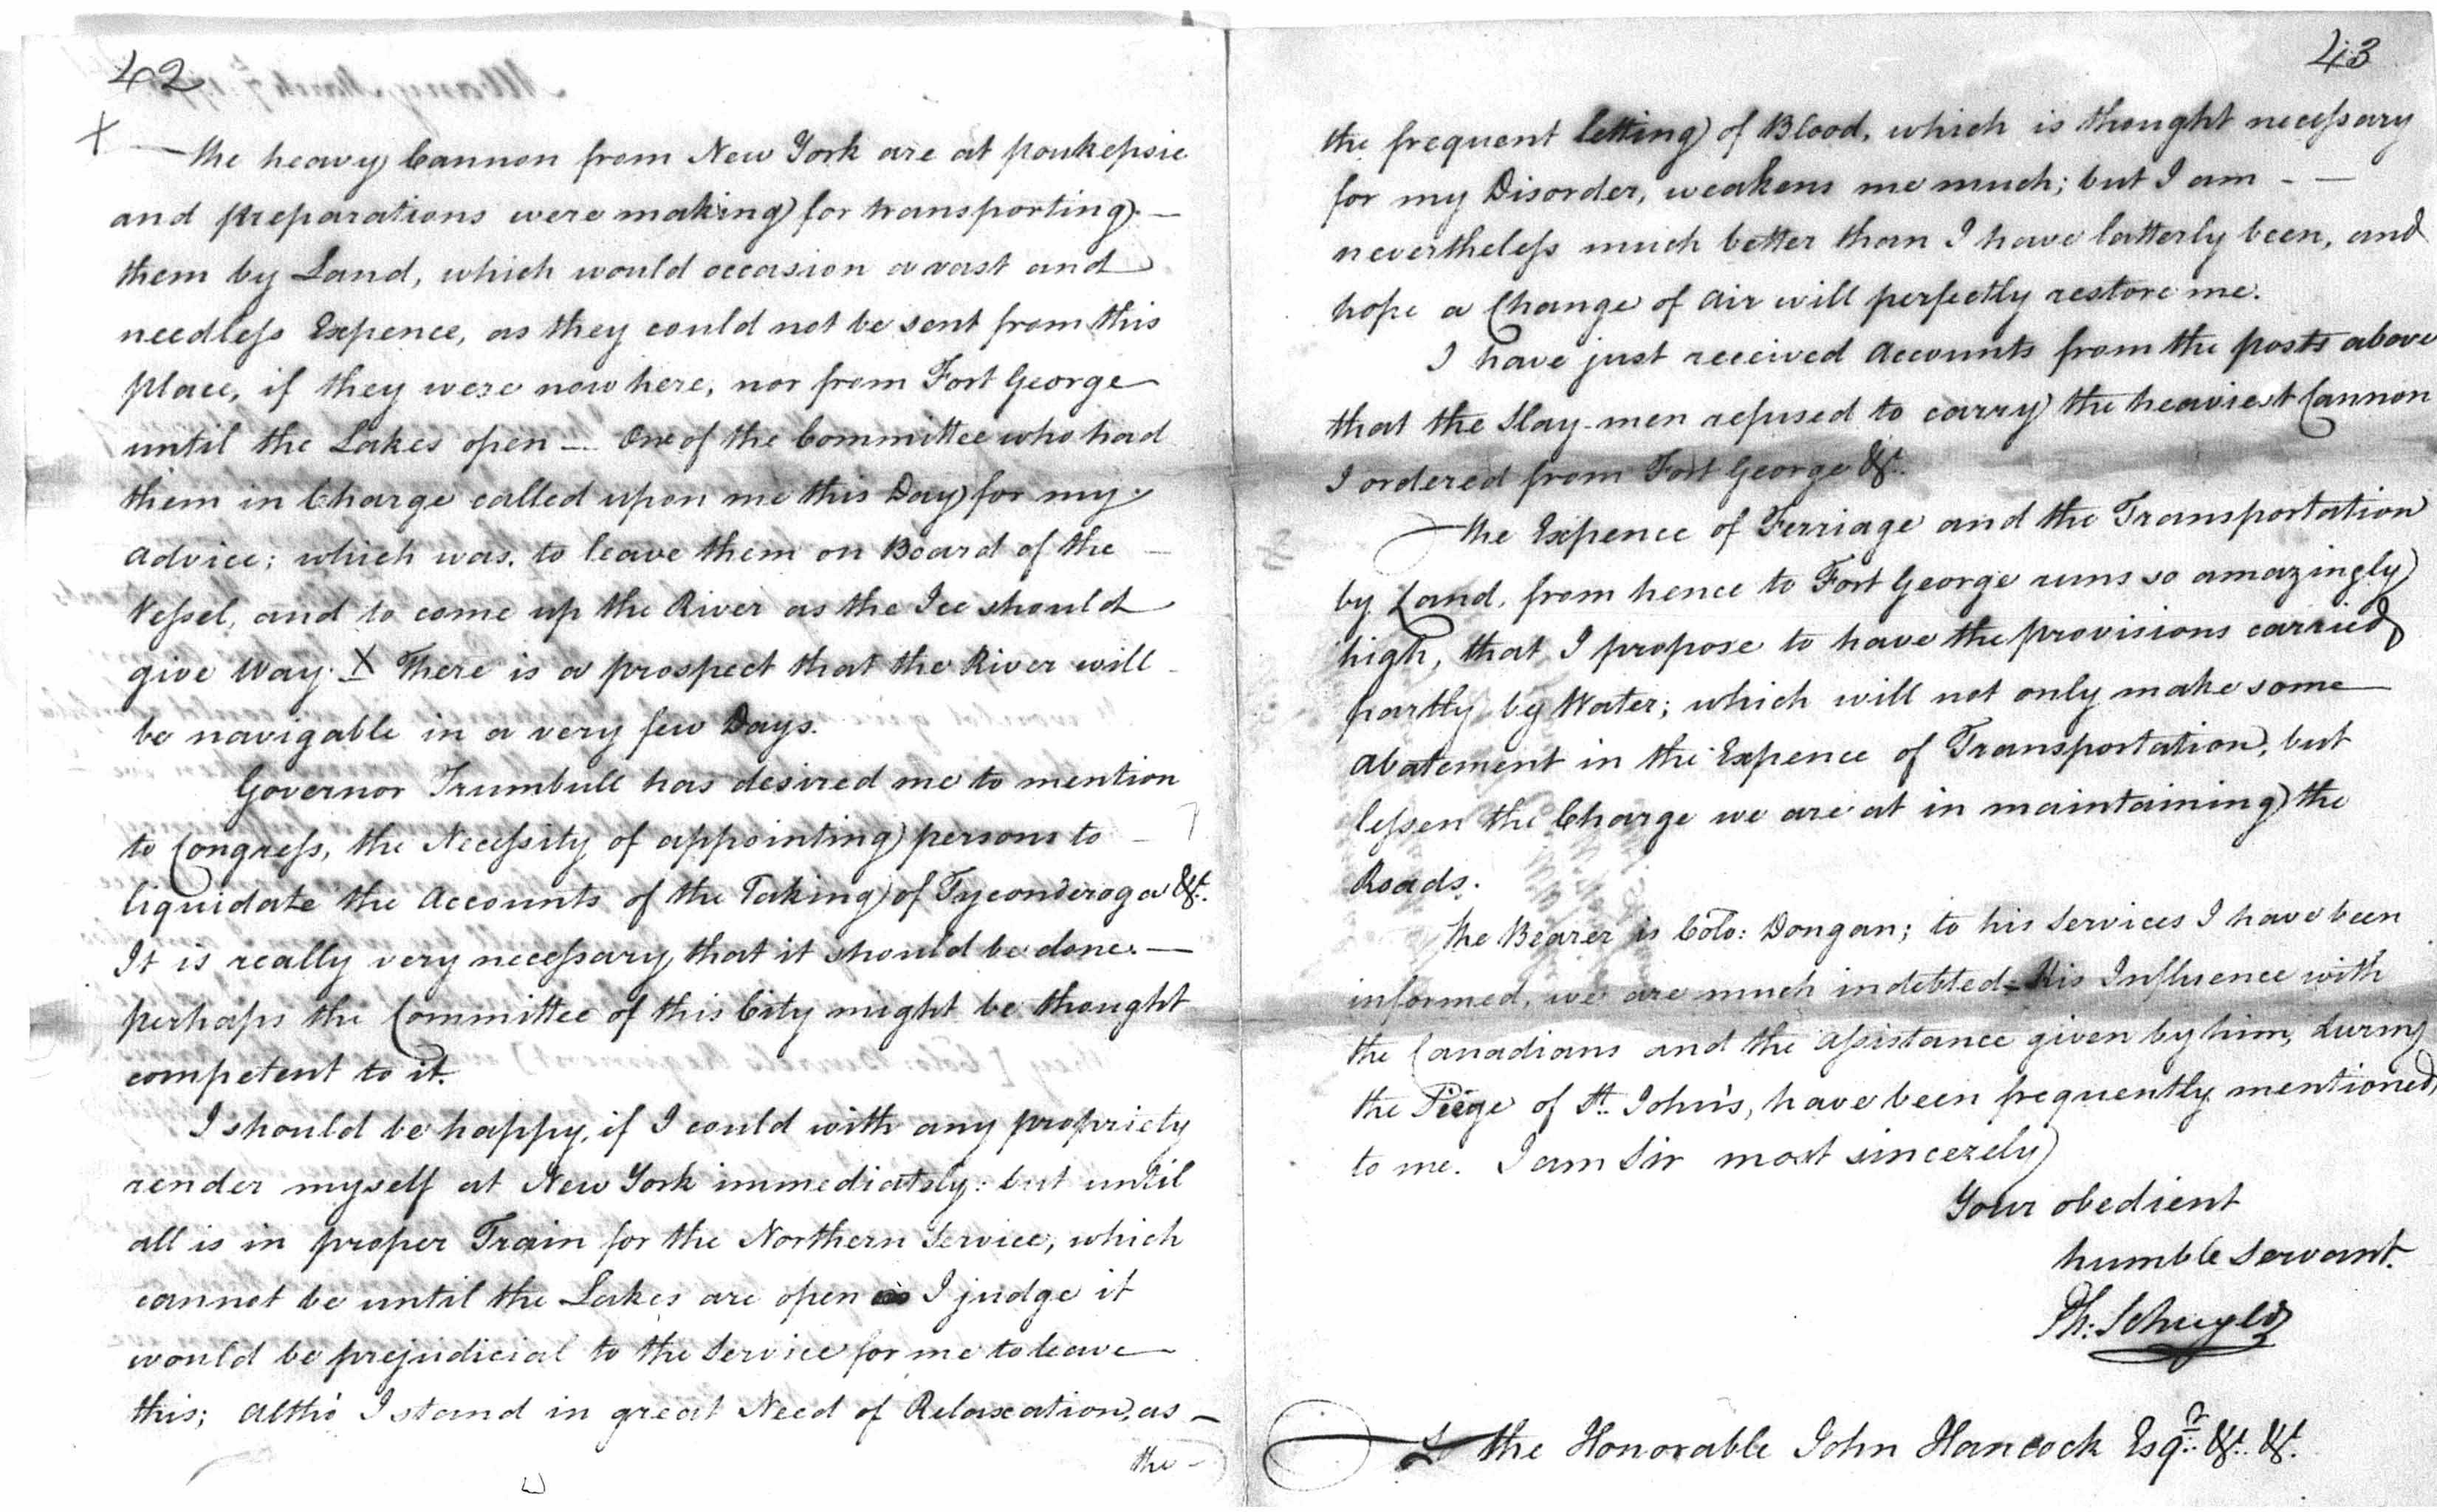 42
X — The heavy Cannon from New York are at poukepsie
and preparations were making for transporting —
them by Land, which would occasion a vast and
needless Expence, as they could not be sent from this
place, if they were now here, nor from Fort George
until the Lakes open — One of the Committee who had
them in Charge called upon me this Day for my
advice; which was, to leave them on Board of the —
Vessel, and to come up the River as the Ice should
give Way. X There is a prospect that the River will
be navigable in a very few Days.
Governor Trumbull has desired me to mention
to Congress, the Necessity of appointing persons to —
liquidate the Accounts of the Taking of Tyconderoga &c.
It is really very necessary, that it should be done. —
perhaps the Committee of this City might be thought
competent to it.
I should be happy, if I could with any propriety
render myself at New York immediately: but until
all is in proper Train for the Northern Service, which
cannot be until the Lakes are open I judge it
would be prejudicial to the Service for me to leave
this; altho' I stand in great Need of Relaxation, as —
the —
43
the frequent letting of Blood, which is thought necessary
for my Disorder, weakens me much; but I am - —
nevertheless much better than I have latterly been, and
hope a Change of air will perfectly restore me.
I have just received Accounts from the posts above
that the Slay-men refused to carry the heaviest Cannon
I ordered from Fort George &c.
The Expence of Ferriage and the Transportation
by Land, from hence to Fort George runs so amazingly
high, that I propose to have the provisions carried
partly by Water; which will not only make some
abatement in the Expence of Transportation, but
lessen the Charge we are at in maintaining the
Roads.
The Bearer is Colo: Dongan; to his Services I have been
informed, we are much indebted - His Influence with
the Canadians and the assistance given by him, during
the Siege of St. John's, have been frequently mentioned,
to me. I am Sir most sincerely
Your obedient
humble Servant.
Ph: Schuyler
To the Honorable John Hancock Esqr. &c. &c.